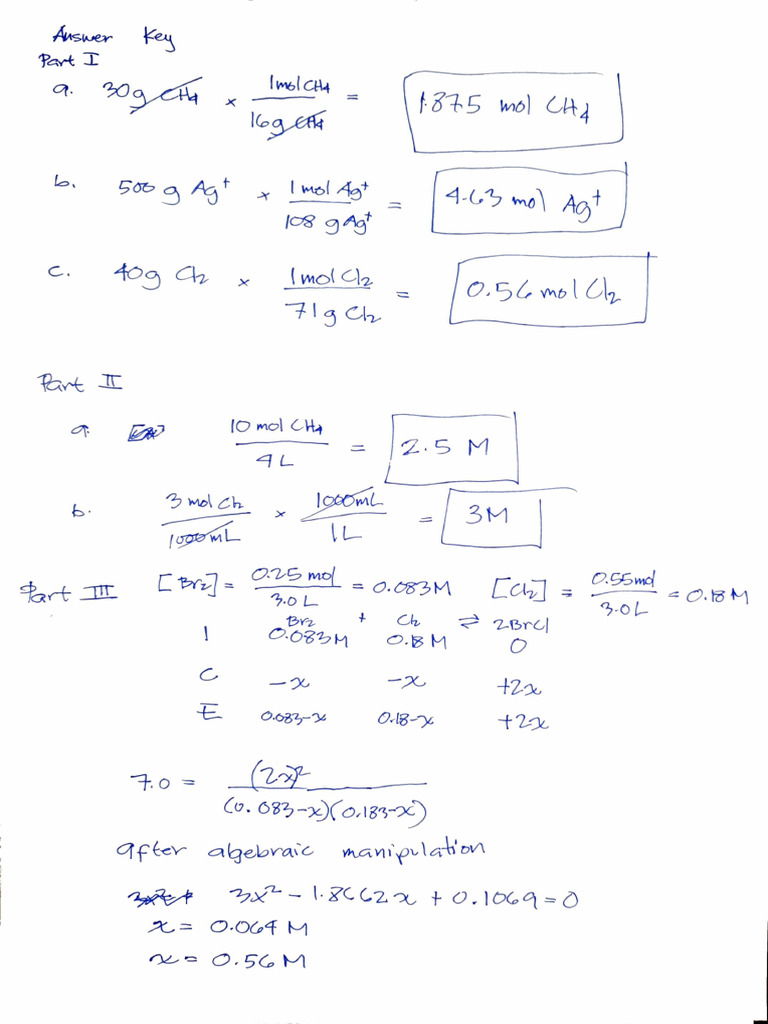 Answer Key
Part I
a. 30g CH4 × 1mol CH4 / 16g CH4 = 1.875 mol CH4
b. 500 g Ag+ × 1 mol Ag+ / 108 g Ag+ = 4.63 mol Ag+
c. 40g Cl2 × 1mol Cl2 / 71g Cl2 = 0.56 mol Cl2
Part II
a. 10 mol CH4 / 4L = 2.5 M
b. 3 mol Cl2 / 1000mL × 1000mL / 1L = 3M
Part III [Br2] = 0.25 mol / 3.0 L = 0.083M [Cl2] = 0.55mol / 3.0L = 0.18M
Br2 + Cl2 ⇌ 2BrCl
I 0.083M 0.18M 0
C -x -x +2x
E 0.083-x 0.18-x +2x
7.0 = (2x)² / (0.083-x)(0.183-x)
after algebraic manipulation
3x² - 1.8662x + 0.1069 = 0
x = 0.064 M
x = 0.56 M